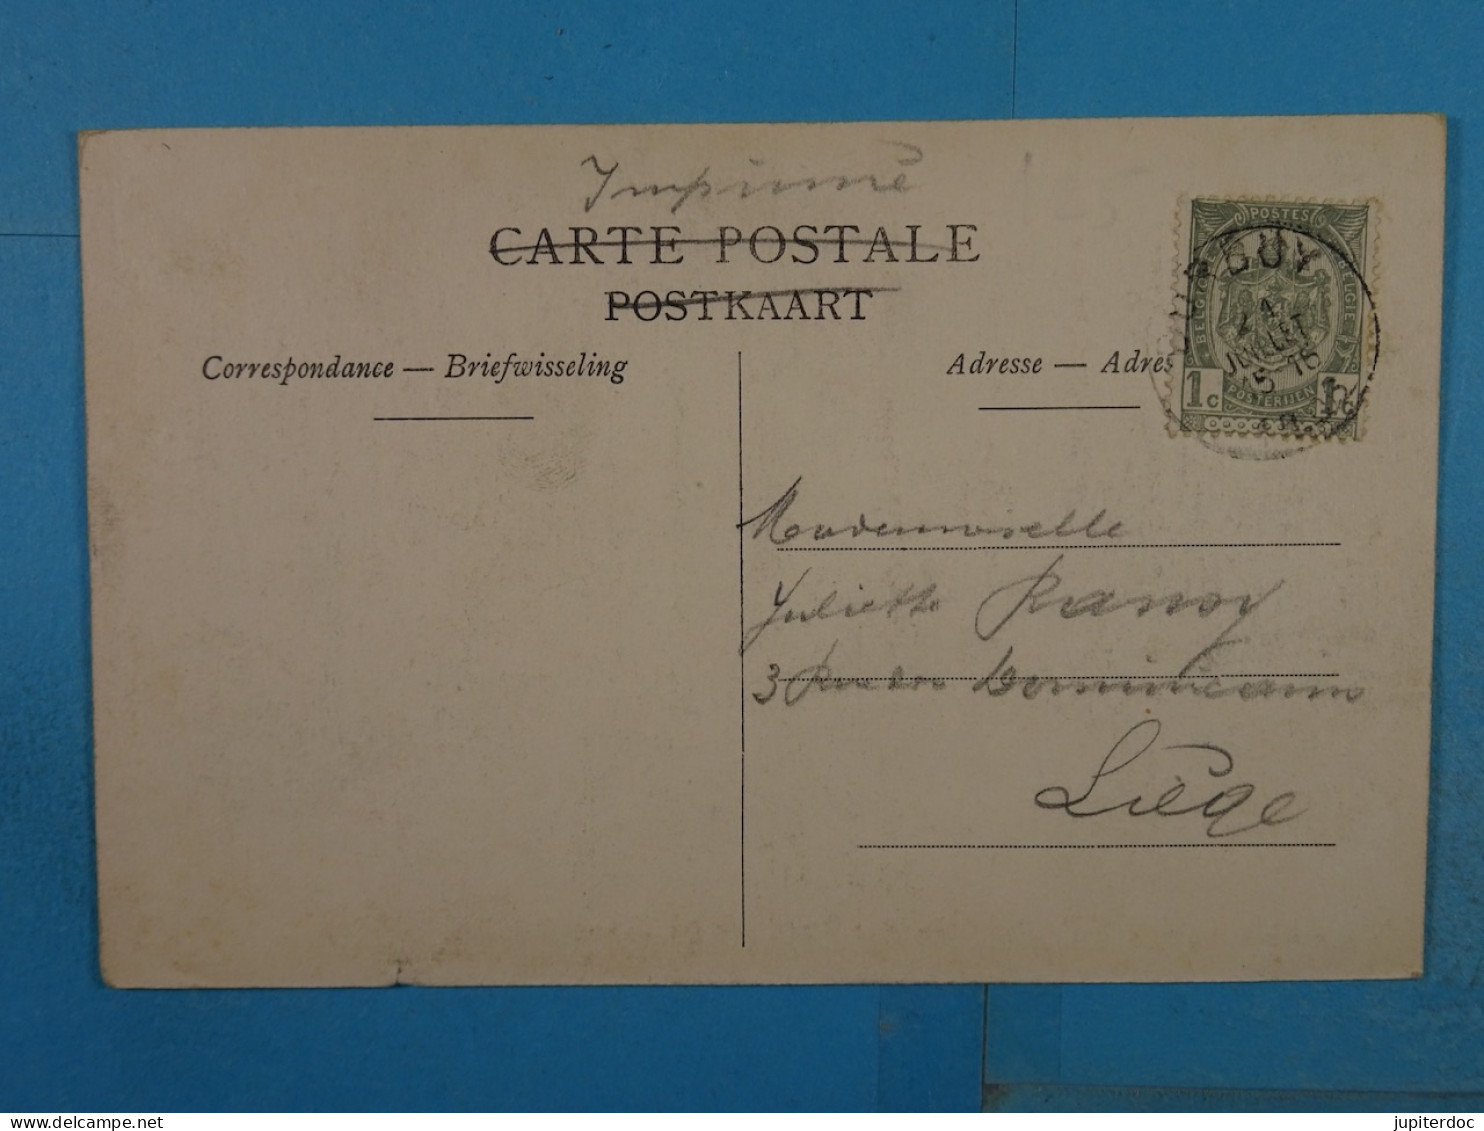 Imprimé
CARTE POSTALE
POSTKAART
Correspondance — Briefwisseling
Adresse — Adres
POSTES
BELGIQUE
BELGIE
1c
1c
POSTERIJEN
DURBUY
JUILLET
15-16
Mademoiselle
Juliette
3 Rue des Dominicains
Liège
jupiterdoc